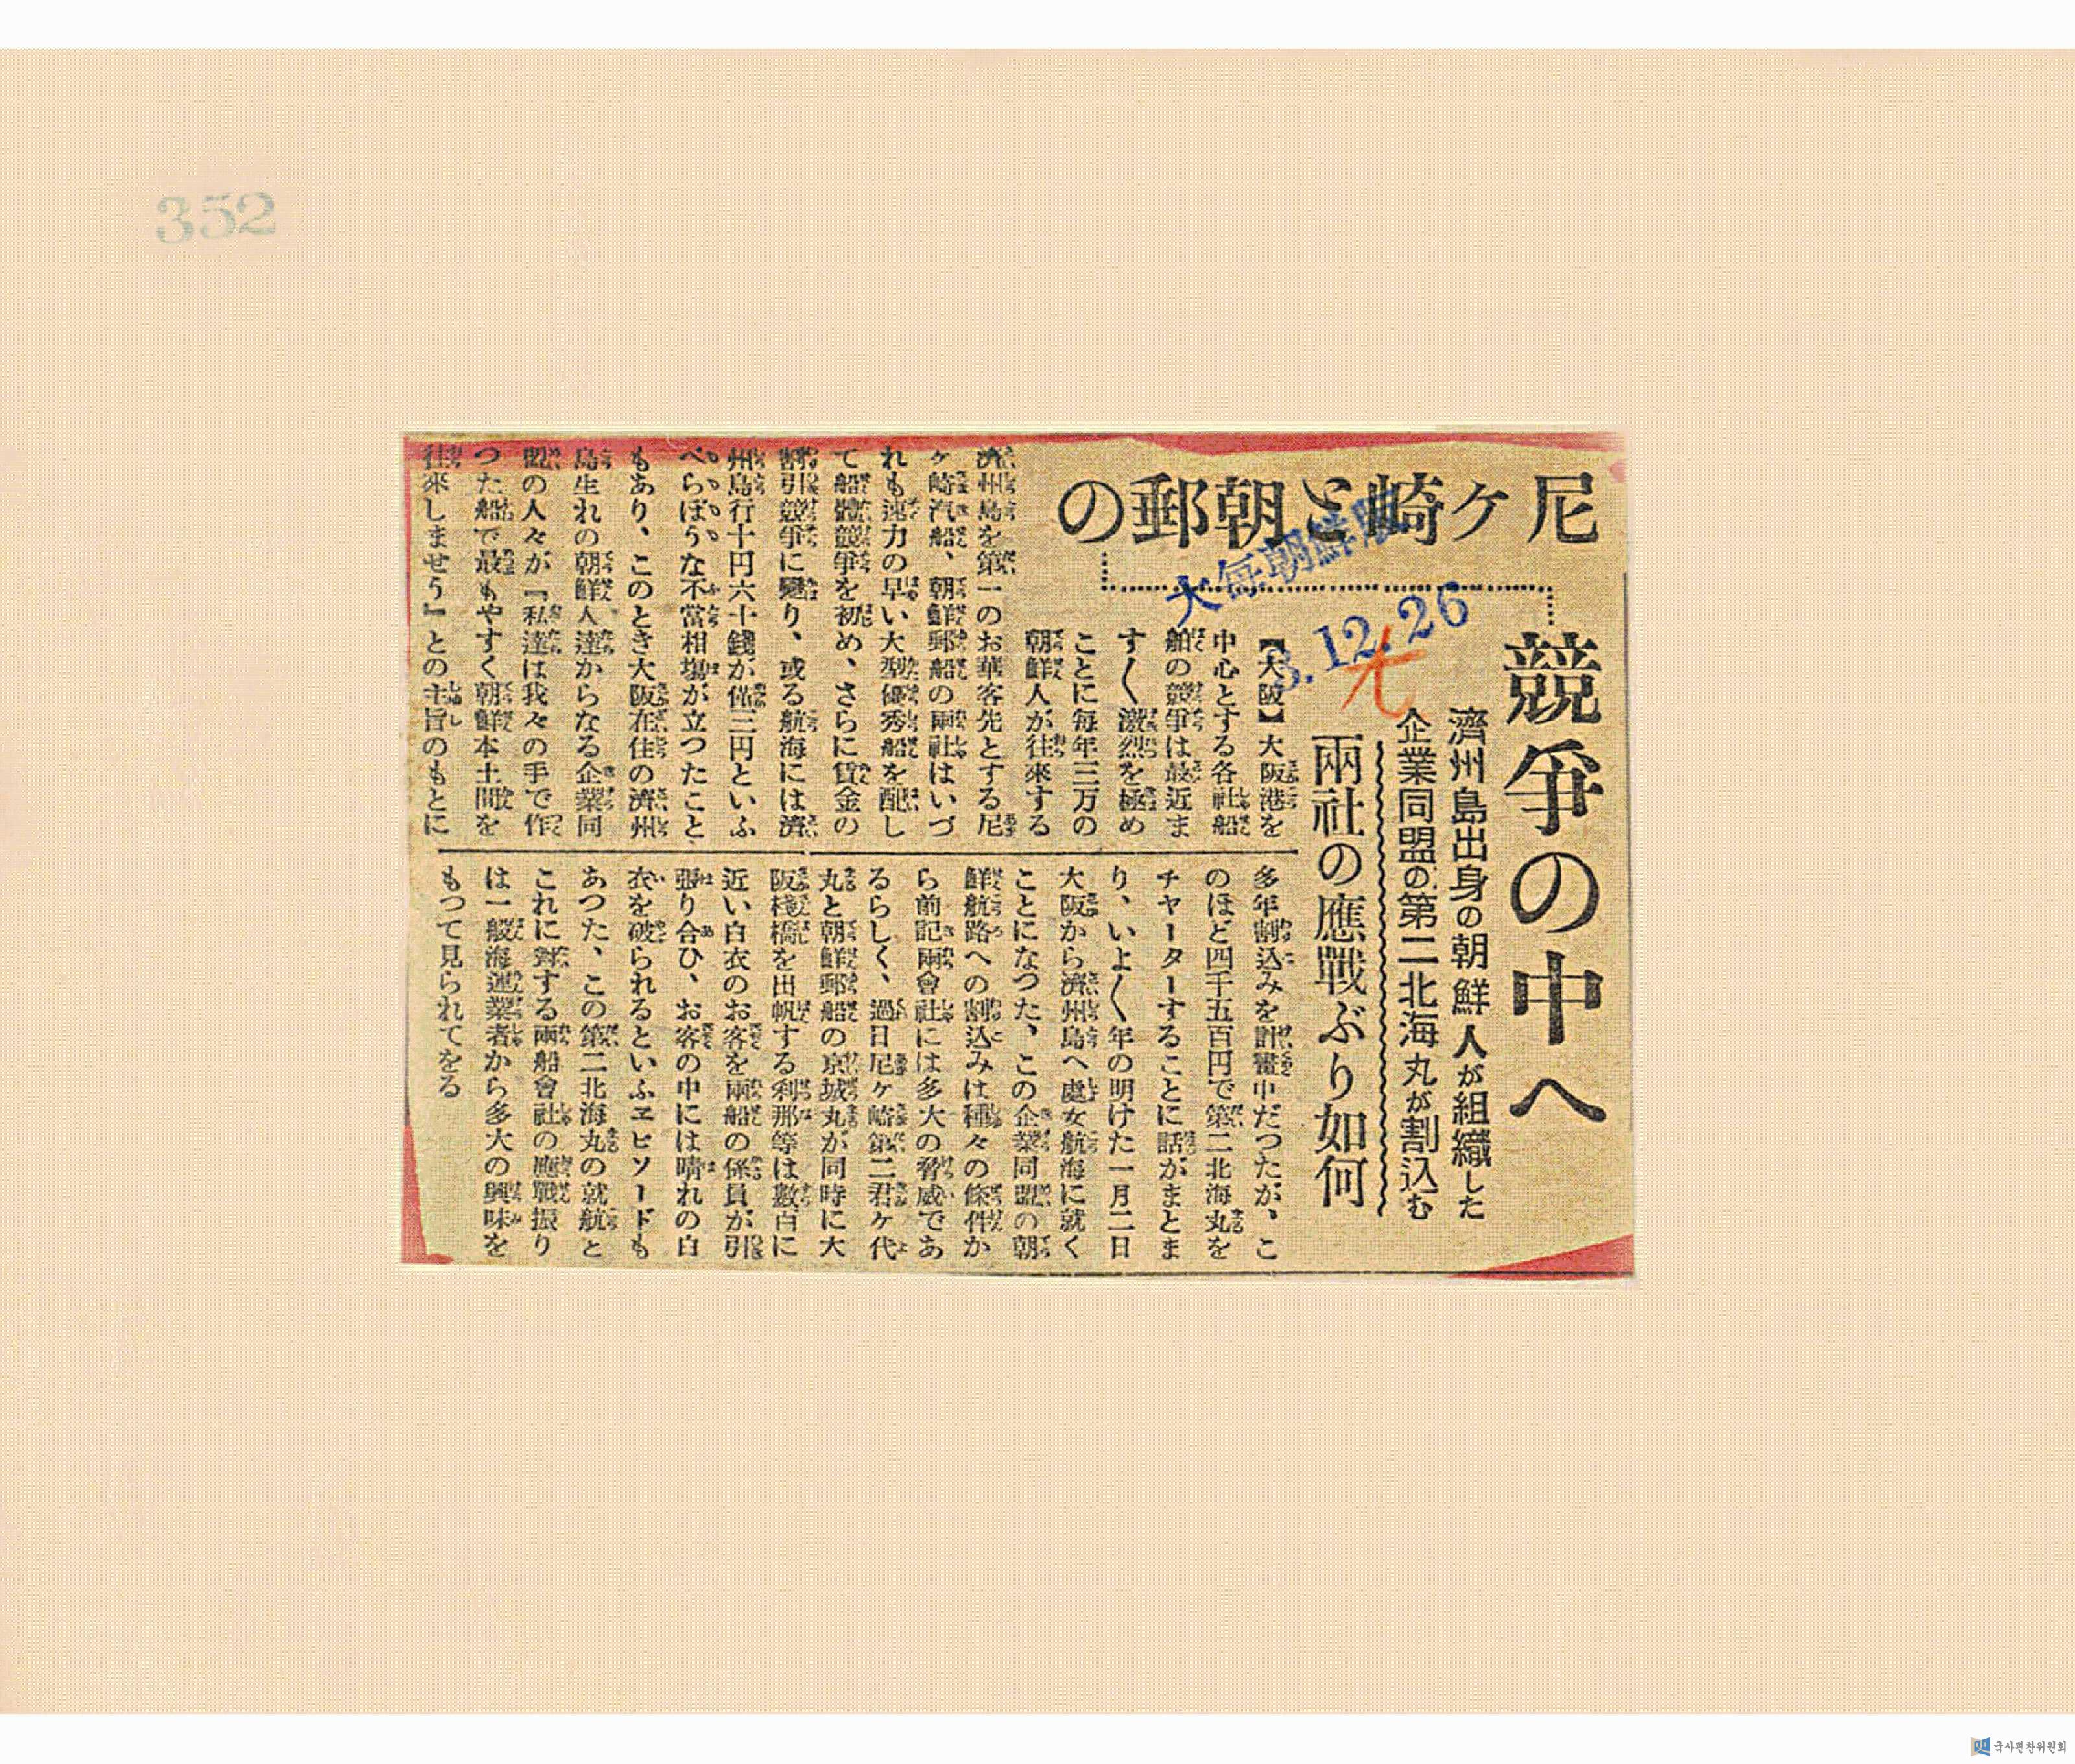 352
尼ケ崎と朝郵の
競爭の中へ
濟州島出身の朝鮮人が組織した
企業同盟の第二北海丸が割込む
兩社の應戰ぶり如何
大每朝鮮版
3.12.26
【大阪】大阪港を
中心とする各社船
舶の競爭は最近ま
す〱激烈を極め
ことに毎年三万の
朝鮮人が往來する
濟州島を第一のお華客先とする尼
ケ崎汽船、朝鮮郵船の兩社はいづ
れも速力の早い大型優秀船を配し
て船體競爭を初め、さらに賃金の
割引競爭に變り、或る航海には濟
州島行十円六十錢が僅三円といふ
べらぼうな不當相場が立つたこと
もあり、このとき大阪在住の濟州
島生れの朝鮮人達からなる企業同
盟の人々が『私達は我々の手で作
つた船で最もやすく朝鮮本土間を
往來しませう』との主旨のもとに
多年割込みを計畫中だつたが、こ
のほど四千五百円で第二北海丸を
チヤーターすることに話がまとま
り、いよ〱年の明けた一月二日
大阪から濟州島へ處女航海に就く
ことになつた、この企業同盟の朝
鮮航路への割込みは種々の條件か
ら前記兩會社には多大の脅威であ
るらしく、過日尼ケ崎第二君ケ代
丸と朝鮮郵船の京城丸が同時に大
阪棧橋を出帆する刹那等は數百に
近い白衣のお客を兩船の係員が引
張り合ひ、お客の中には晴れの白
衣を破られるといふエピソードも
あつた、この第二北海丸の就航と
これに對する兩船會社の應戰振り
は一般海運業者から多大の興味を
もつて見られてをる
국사편찬위원회